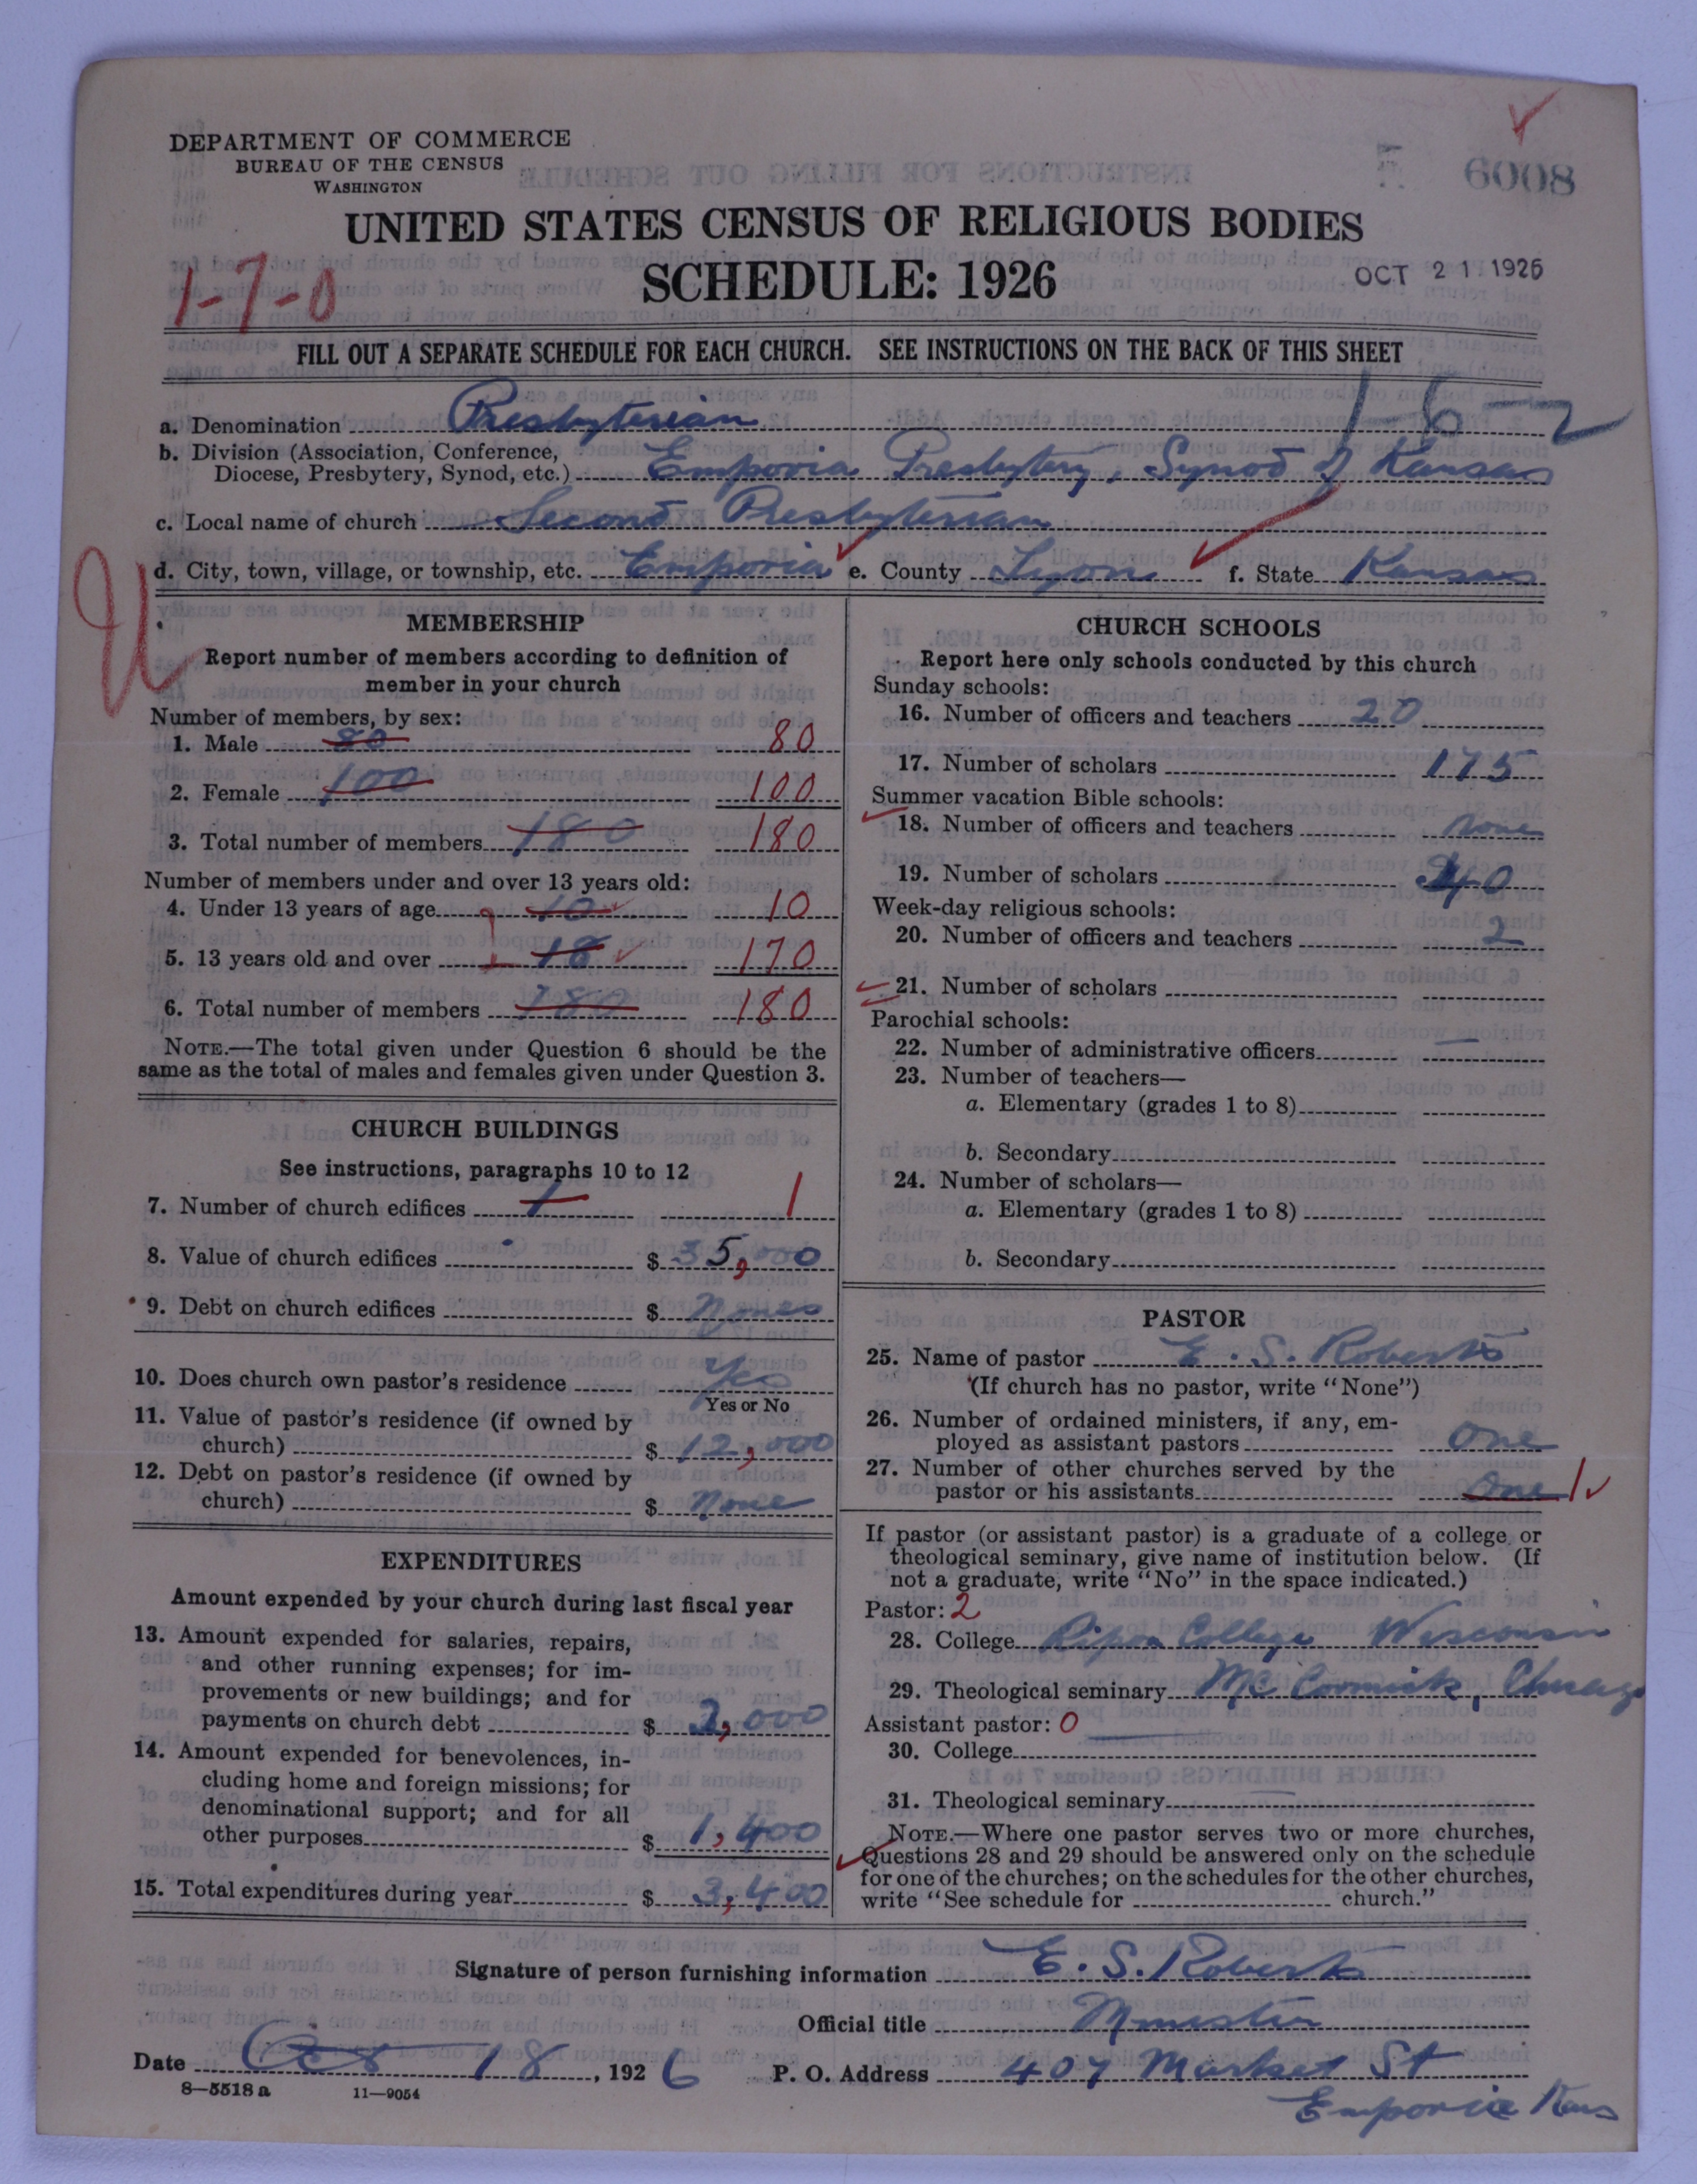 DEPARTMENT OF COMMERCE
BUREAU OF THE CENSUS
WASHINGTON
6008
UNITED STATES CENSUS OF RELIGIOUS BODIES
SCHEDULE: 1926
OCT 21 1926
1-7-0
FILL OUT A SEPARATE SCHEDULE FOR EACH CHURCH. SEE INSTRUCTIONS ON THE BACK OF THIS SHEET
a. Denomination Presbyterian
b. Division (Association, Conference,
Diocese, Presbytery, Synod, etc.) Emporia Presbytery, Synod of Kansas
c. Local name of church Second Presbyterian
d. City, town, village, or township, etc. Emporia e. County Lyon f. State Kansas
MEMBERSHIP
Report number of members according to definition of
member in your church
Number of members, by sex:
1. Male 80 80
2. Female 100 100
3. Total number of members 180 180
Number of members under and over 13 years old:
4. Under 13 years of age 10 10
5. 13 years old and over 18 170
6. Total number of members 180 180
NOTE.—The total given under Question 6 should be the
same as the total of males and females given under Question 3.
CHURCH BUILDINGS
See instructions, paragraphs 10 to 12
7. Number of church edifices 1 1
8. Value of church edifices $ 35,000
9. Debt on church edifices $ None
10. Does church own pastor's residence Yes
Yes or No
11. Value of pastor's residence (if owned by
church) $ 12,000
12. Debt on pastor's residence (if owned by
church) $ None
EXPENDITURES
Amount expended by your church during last fiscal year
13. Amount expended for salaries, repairs,
and other running expenses; for im-
provements or new buildings; and for
payments on church debt $ 2,000
14. Amount expended for benevolences, in-
cluding home and foreign missions; for
denominational support; and for all
other purposes $ 1,400
15. Total expenditures during year $ 3,400
CHURCH SCHOOLS
Report here only schools conducted by this church
Sunday schools:
16. Number of officers and teachers 20
17. Number of scholars 175
Summer vacation Bible schools:
18. Number of officers and teachers None
19. Number of scholars 40
Week-day religious schools:
20. Number of officers and teachers 2
21. Number of scholars
Parochial schools:
22. Number of administrative officers —
23. Number of teachers—
a. Elementary (grades 1 to 8)
b. Secondary
24. Number of scholars—
a. Elementary (grades 1 to 8)
b. Secondary
PASTOR
25. Name of pastor E. S. Roberts
(If church has no pastor, write "None")
26. Number of ordained ministers, if any, em-
ployed as assistant pastors One
27. Number of other churches served by the
pastor or his assistants One 1
If pastor (or assistant pastor) is a graduate of a college or
theological seminary, give name of institution below. (If
not a graduate, write "No" in the space indicated.)
Pastor: 2
28. College Ripon College Wisconsin
29. Theological seminary McCormick, Chicago
Assistant pastor: 0
30. College
31. Theological seminary
NOTE.—Where one pastor serves two or more churches,
Questions 28 and 29 should be answered only on the schedule
for one of the churches; on the schedules for the other churches,
write "See schedule for church."
Signature of person furnishing information E. S. Roberts
Official title Minister
Date Oct 18, 1926 P. O. Address 407 Market St
8—5518 a 11—9054
Emporia Kans